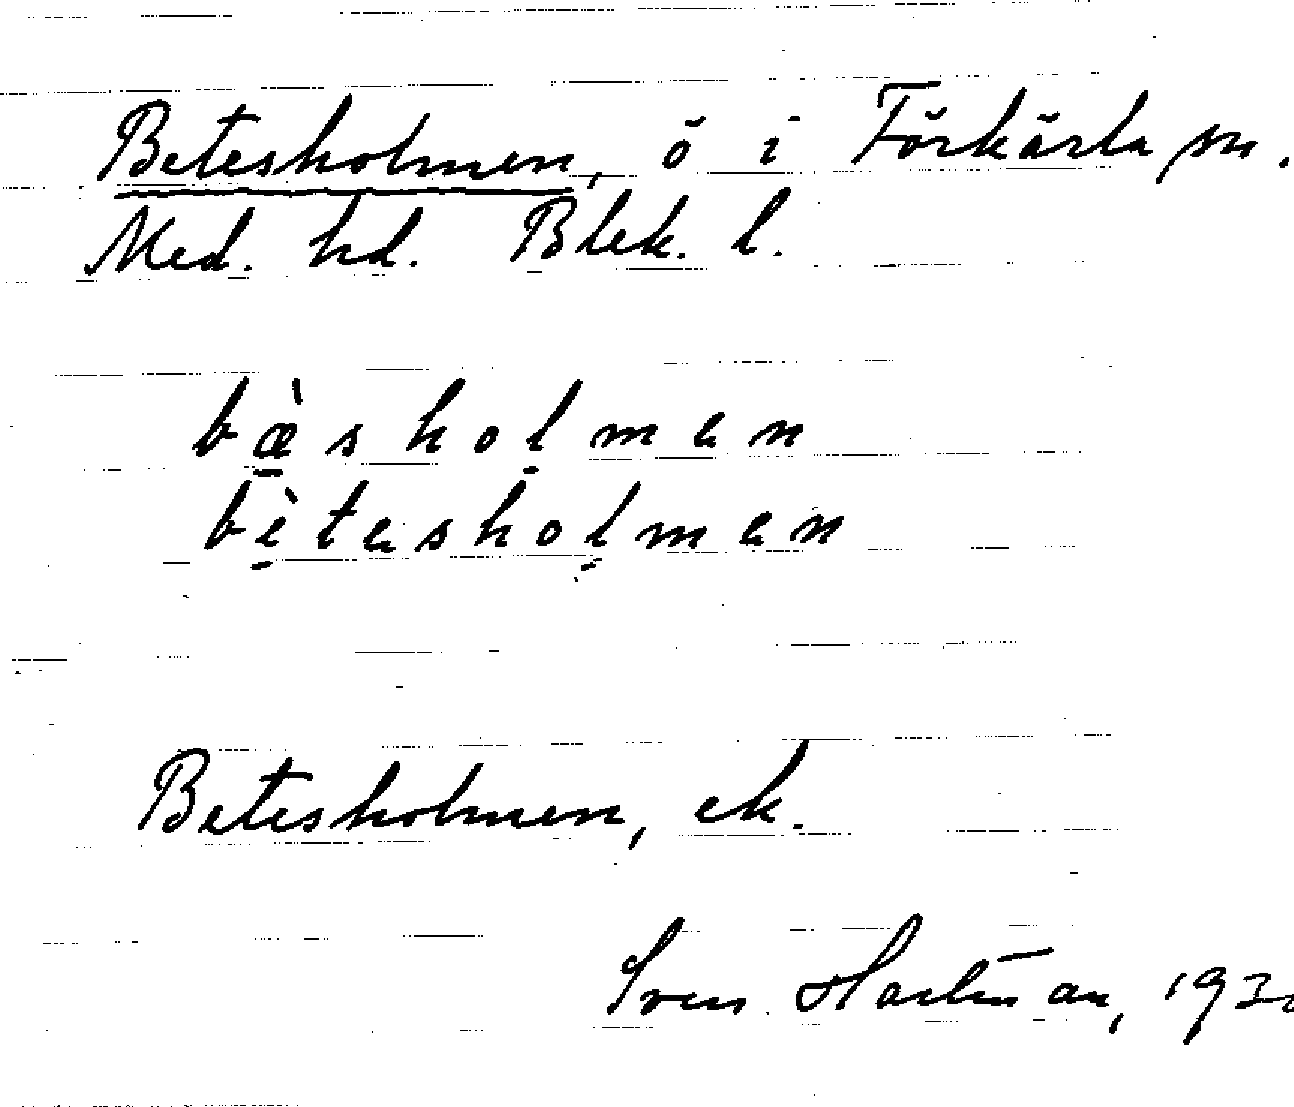 Betesholmen, ö i Förkärla sn.
Med. hd. Blek. l.
bæ̀sholmen
bètesholmen
Betesholmen, ek.
Sven Hartman,